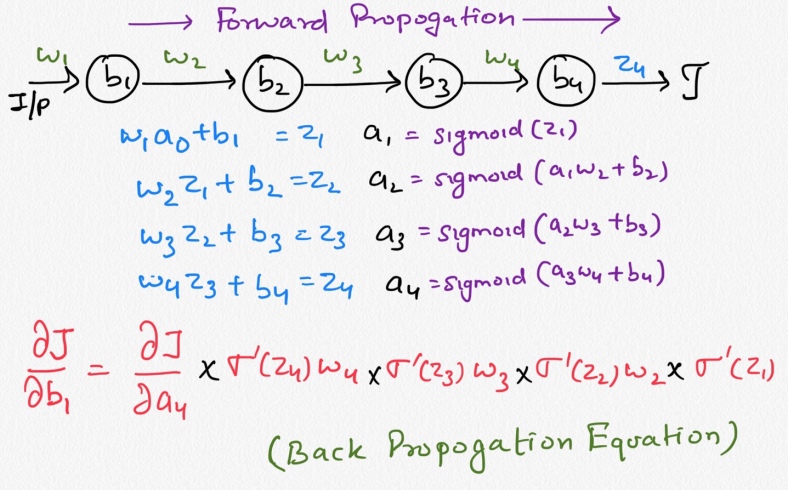 → Forward Propogation →
w₁ w₂ w₃ w₄ z₄
I/p b₁ b₂ b₃ b₄ J
w₁a₀+b₁ = z₁ a₁ = sigmoid(z₁)
w₂z₁+b₂=z₂ a₂ = sigmoid(a₁w₂+b₂)
w₃z₂+b₃=z₃ a₃ = sigmoid(a₂w₃+b₃)
w₄z₃+b₄=z₄ a₄=sigmoid(a₃w₄+b₄)
∂J/∂b₁ = ∂J/∂a₄ × σ'(z₄)w₄ × σ'(z₃)w₃ × σ'(z₂)w₂ × σ'(z₁)
(Back Propogation Equation)